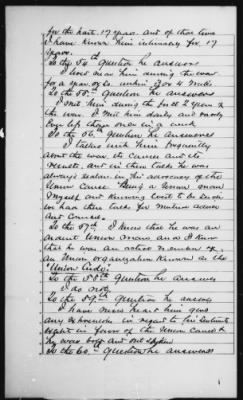 for the last 17 years. and of those times
I have known him intimately for 17
years.
To the 54th Question he answers
I lived near him during the war
for a year or so. within 3 or 4 miles
To the 55th Question he answers
I met him during the first 2 years of
the war. I met him daily and rarely
ever left once in a week
To the 56th Question he answers
I talked with him frequently
about the war its causes and its
results. and in these talks he was
always zealous in his advocacy of the
Union Cause. Being a Union man
Myself and knowing him to be such
we had these talks for mutual advice
and Counsel.
To the 57th I know that he was an
ardent Union man and I know
that he was an active member of
an Union organization known as the
"Union Club"
To the 58th Question he answers
I do not
To the 59th Question he answers
I have never heard him give
any expression in regard to his sentiments
except in favor of the Union Cause &
he was both and out spoken
To the 60th Question he answers